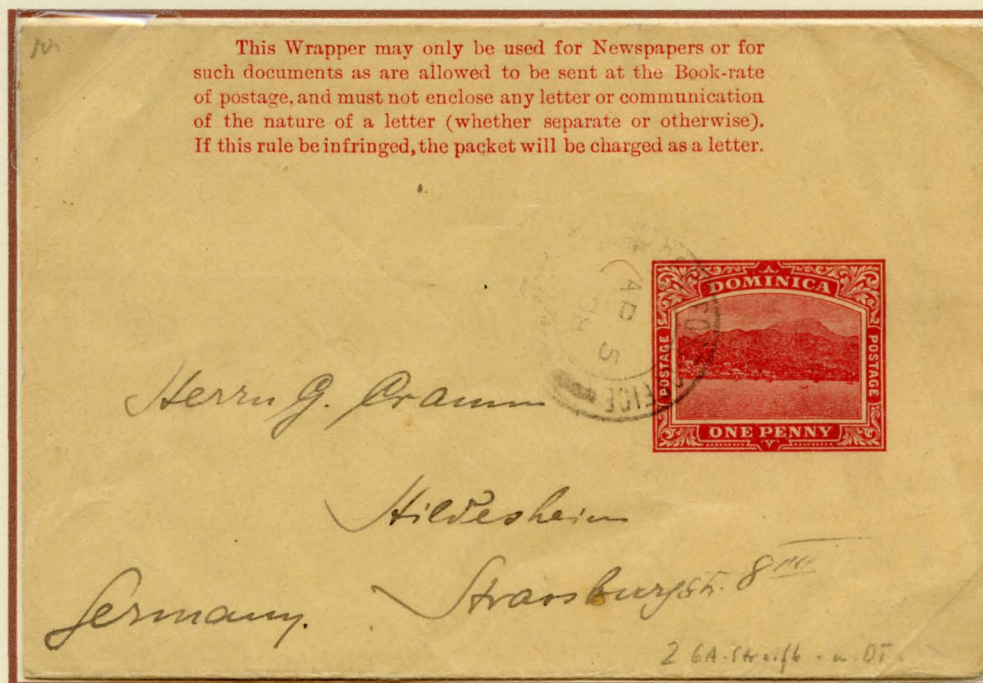 This Wrapper may only be used for Newspapers or for
such documents as are allowed to be sent at the Book-rate
of postage, and must not enclose any letter or communication
of the nature of a letter (whether separate or otherwise).
If this rule be infringed, the packet will be charged as a letter.
DOMINICA
POSTAGE
POSTAGE
ONE PENNY
AP 5
08
OFFICE
Herrn G. Cramm
Hildesheim
Strassburgstr. 8 III
Germany.